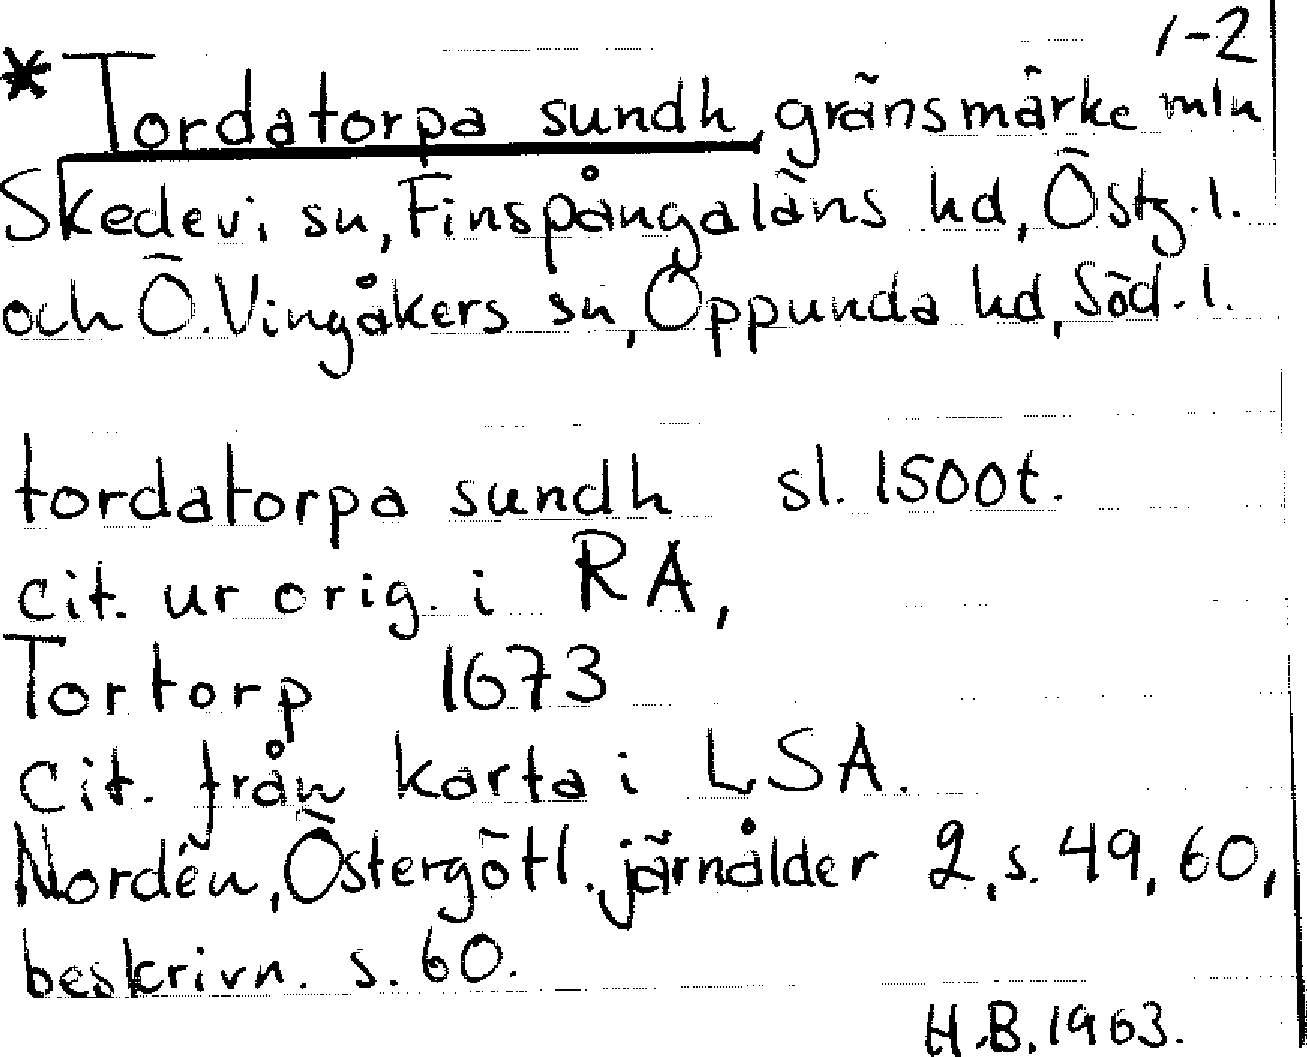 1-2
*Tordatorpa sundh, gränsmärke mln
Skedevi sn, Finspångaläns hd, Östg.l.
och Ö. Vingåkers sn, Oppunda hd, Söd.l.
tordatorpa sundh sl. 1500t.
cit. ur orig. i RA,
Tortorp 1673
cit. från karta i LSA.
Nordén, Östergötl. järnålder 2, s. 49, 60,
beskrivn. s. 60.
H.B. 1963.